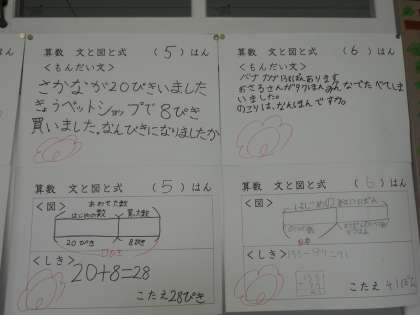 算数 文と図と式 (5)はん
<もんだい文>
さかなが20ぴきいました
きょうペットショップで8ぴき
買いました。なんびきになりましたか
算数 文と図と式 (6)はん
<もんだい文>
バナナが135ほんあります
おさるさんが97ほんみんなでたべてしま
いました。
のこりは、なんぼんですか。
算数 文と図と式 (5)はん
<図>
あわせた数
はじめの数 買った数
20ぴき 8ぴき
□ひき
<しき>
20+8=28
こたえ28ぴき
算数 文と図と式 (6)はん
<図>
<しき>
こたえ